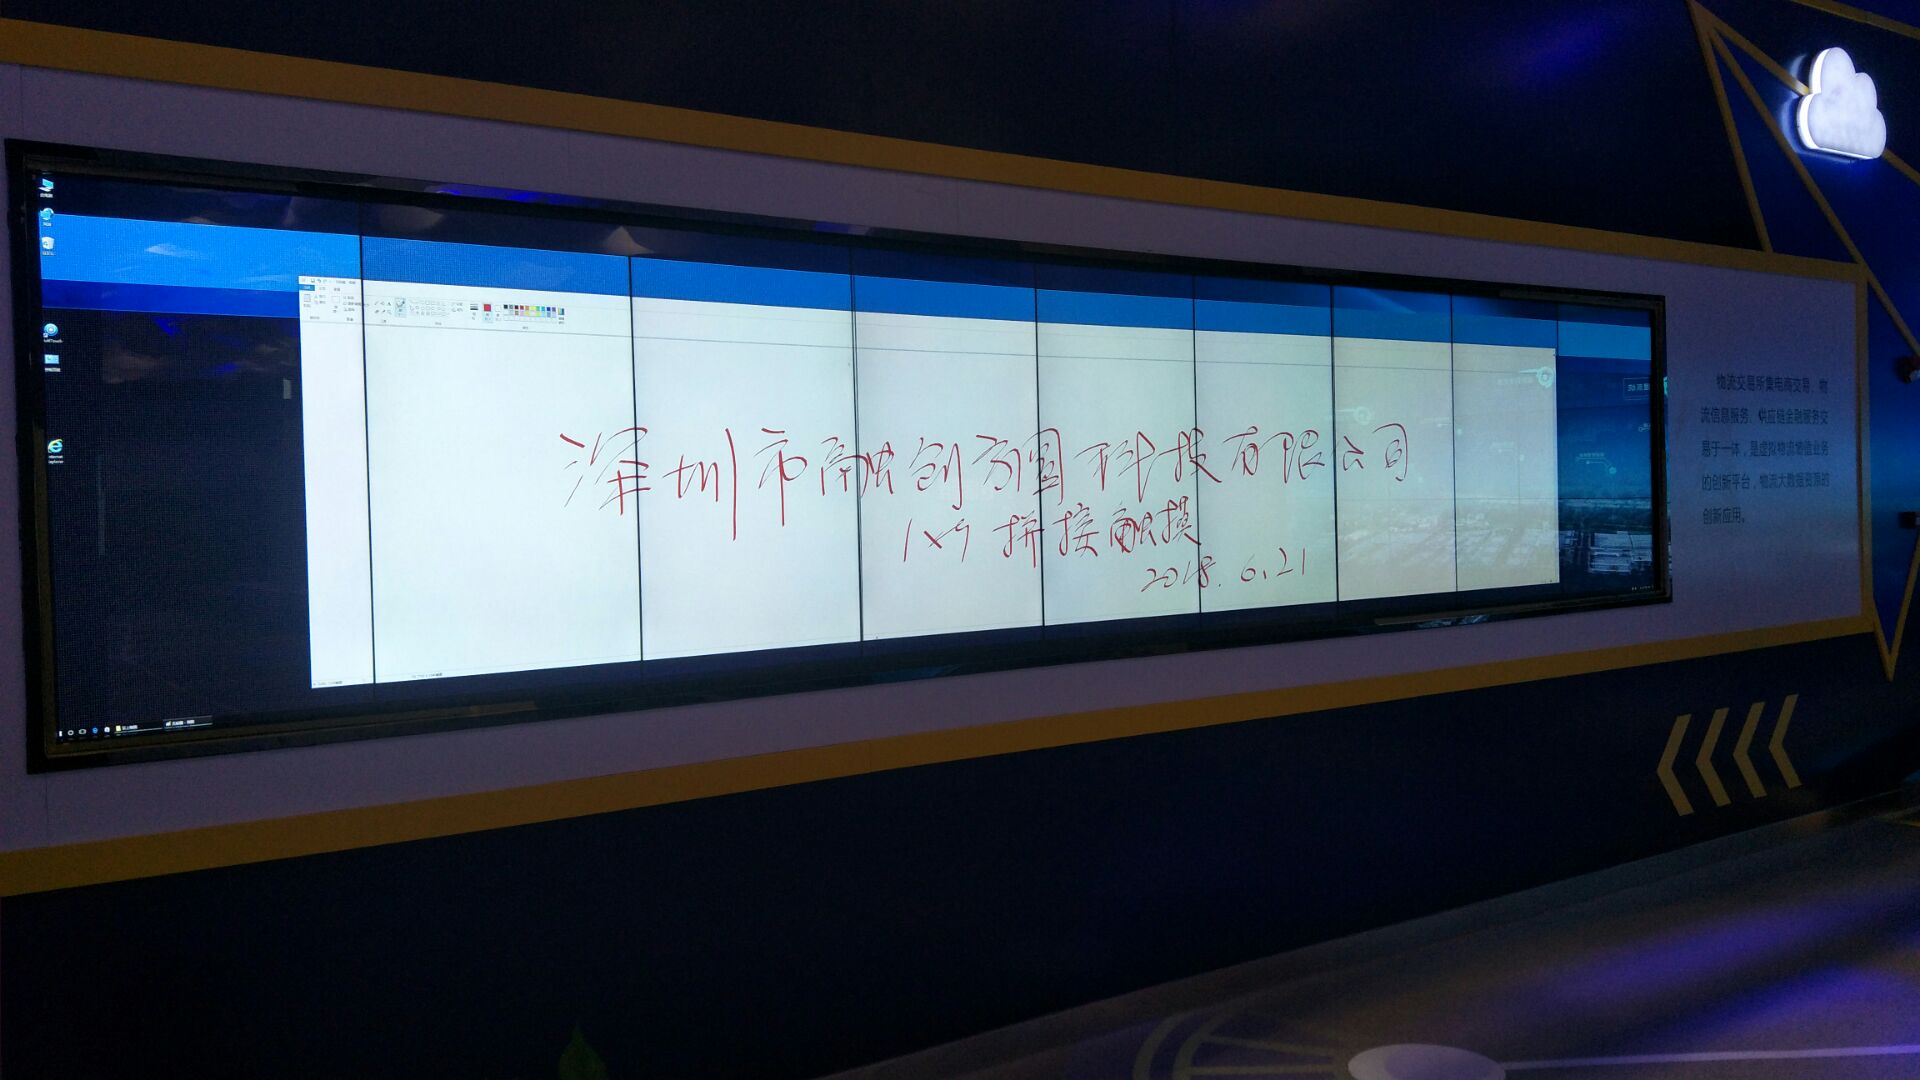 深圳市融创方圆科技有限公司
1×9 拼接触摸
2018.6.21
物流交易所集电商交易、物
流信息服务、供应链金融服务交
易于一体，是虚拟物流增值业务
的创新平台，物流大数据资源的
创新应用。